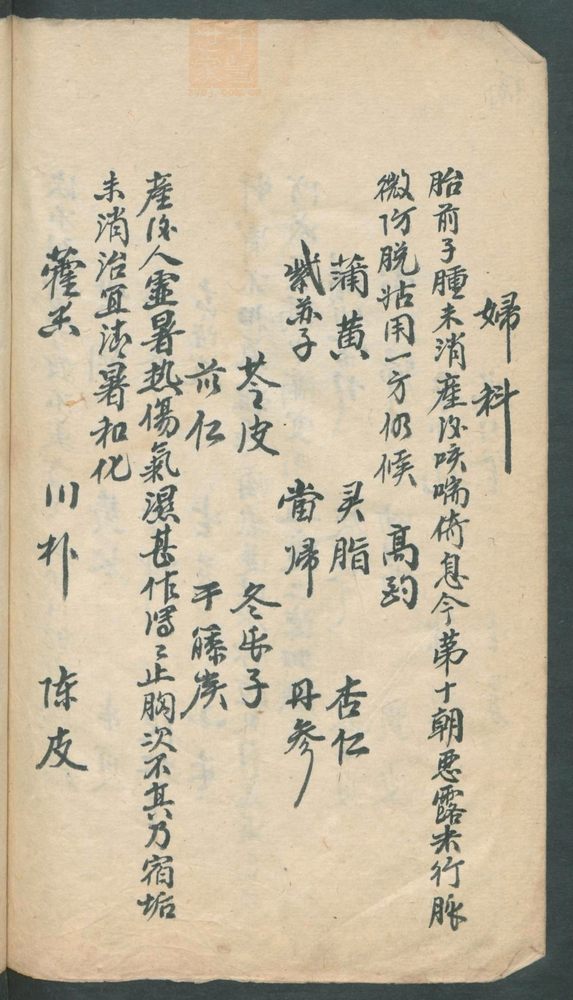 婦科
胎前子腫未消產后咳喘倚息今第十朝惡露未行脉
微防脫姑用一方仍候 高酌
蒲黄 灵脂 杏仁
紫苏子 當帰 丹參
苓皮 冬瓜子
苡仁 干藤炭
產后人虛暑熱傷氣濕甚作瀉瀉止胸次不其乃宿垢
未消治宜清暑和化
藿香 川朴 陈皮